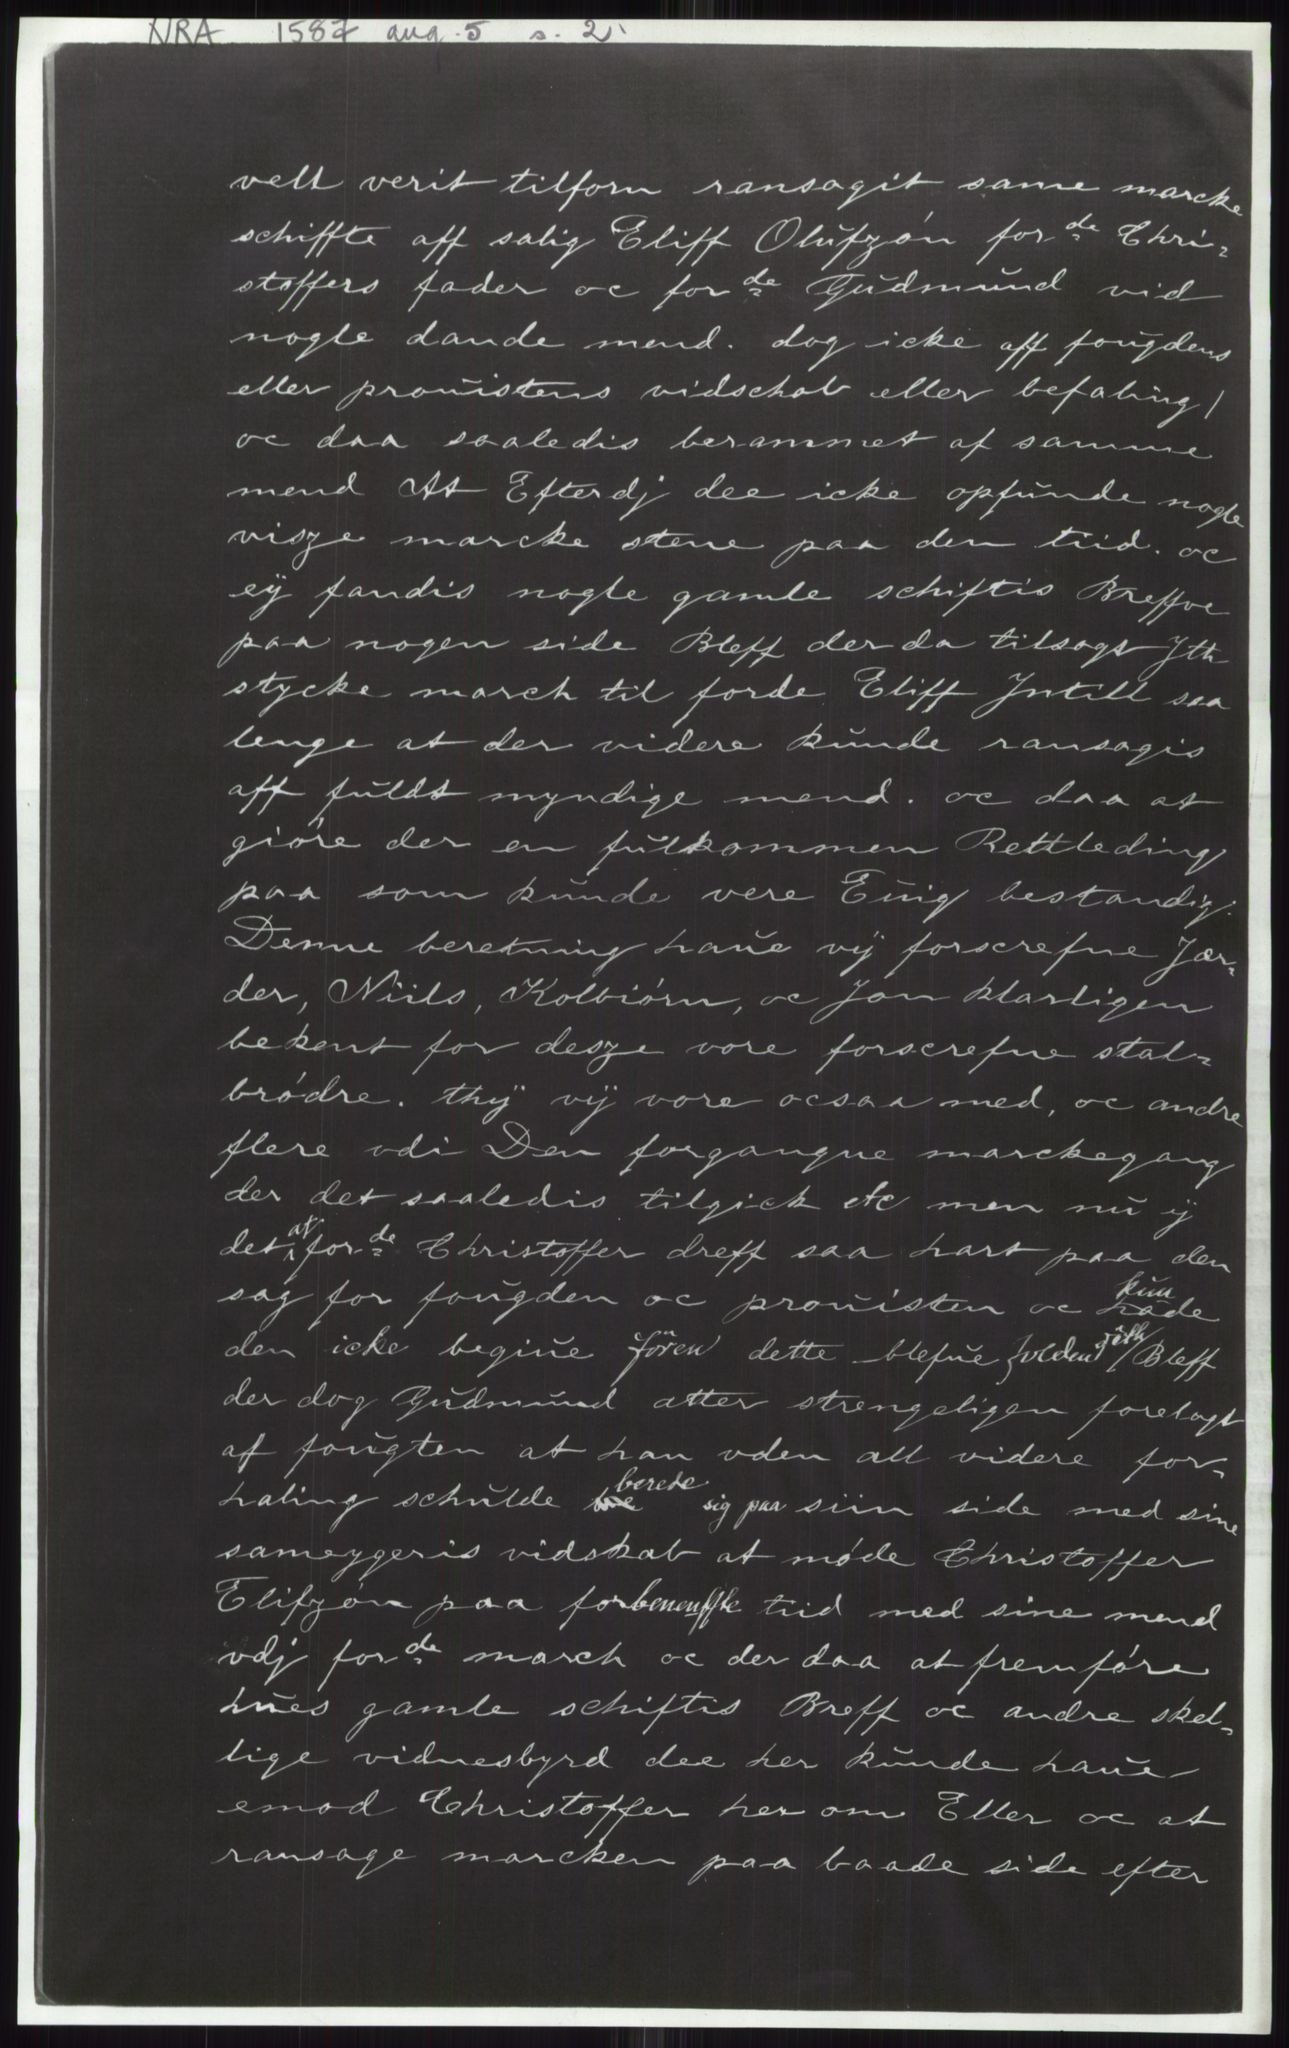 NRA 1587 aug. 5 s. 2.
velt verit tilforn ransagit same marcke
schiffte aff salig Eliff Olufzøn for de Chri-
stoffers fader oc for de Gudmund vid
nogle dande mend. dog icke aff fougdens
eller prouistens vidschab eller befaling/
oc daa saaledis berammet af samme
mend At Efterdj dee icke opfunde nogle
visze marcke stene paa den tiid. oc
eÿ fandis nogle gamle schiftis Breffve
paa nogen side Bleff der da tilsagt Jth
stycke march til forde Eliff Jntill saa
lenge at der videre kunde ransagis
aff fuldt myndige mend. oc daa at
giøre der en fulkommen Rettleding
paa som kunde vere Euig bestandig.
Denne beretning haue vÿ forscrefne Jær-
der, Niils, Kolbiørn, oc Jon klarligen
bekent for desze vore forscrefne stal-
brødre. thÿ vÿ vore ocsaa med, oc andre
flere vdi Den forgangne marckegang
der det saaledis tilgick etc men nu ÿ
det at for de Christoffer dreff saa hart paa den
sag for fougden oc prouisten oc kun hade
den icke begiue fören dette blefue Bleff
der dog Gudmund atter strengeligen forelagt
af fougten at han vden all videre for-
haling schulde berede sig paa siin side med sine
sameygeris vidskab at møde Christoffer
Elifzøn paa forbeneffte tiid med sine mend
vdj for de march oc der daa at fremføre
hues gamle schiftis Breff oc andre skel-
lige vidnesbyrd dee her kunde haue
emod Christoffer her om Eller oc at
ransage marcken paa baade side efter